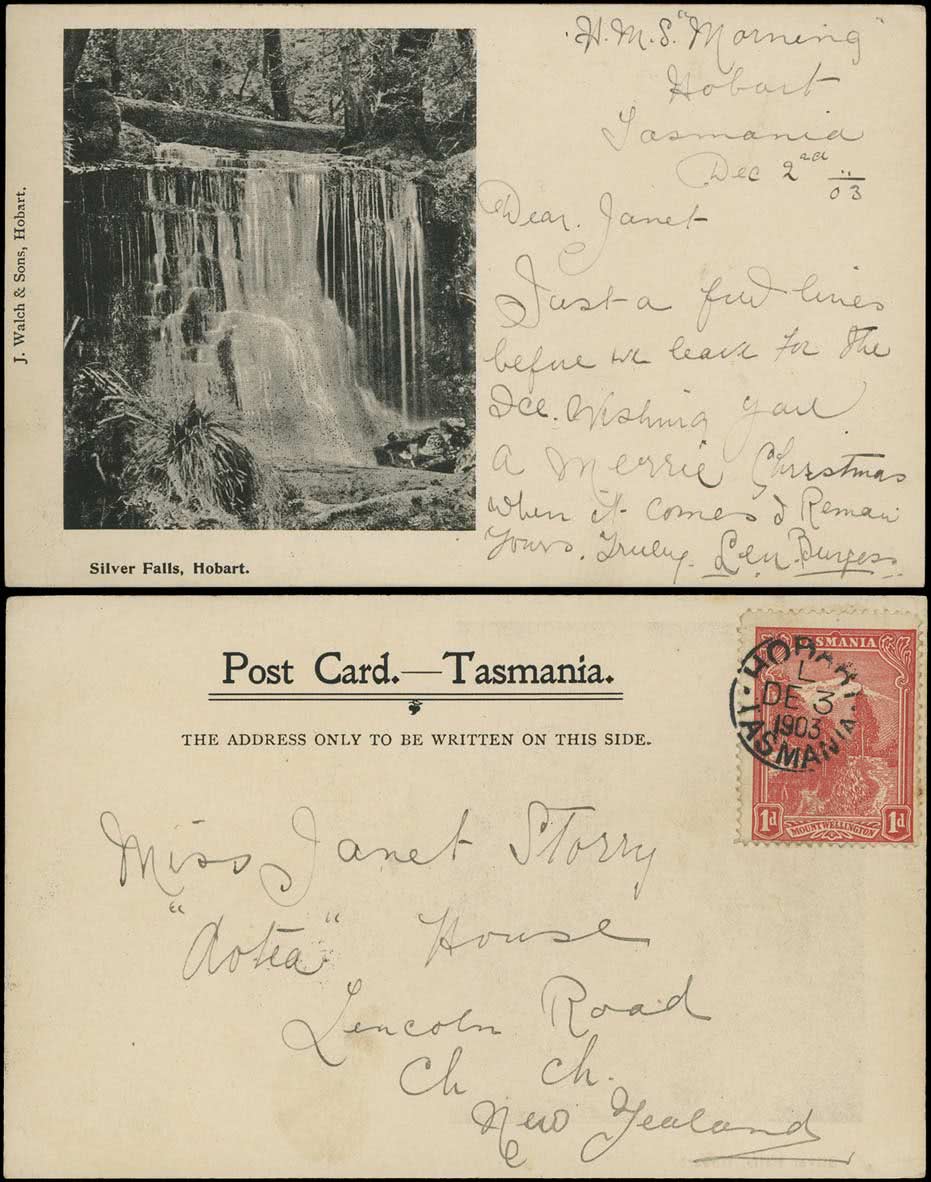 H.M.S. "Morning"
Hobart
Tasmania
Dec 2nd 03
Dear Janet
Just a few lines
before we leave for the
Ice. Wishing you
A Merrie Christmas
when it comes I Remain
Yours. Truley. Len. Burgess
J. Walch & Sons, Hobart.
Silver Falls, Hobart.
Post Card.—Tasmania.
THE ADDRESS ONLY TO BE WRITTEN ON THIS SIDE.
TASMANIA
HOBART
L
DE 3
1903
TASMANIA
1d MOUNT WELLINGTON 1d
Miss Janet Storry
"Aotea" House
Lincoln Road
Ch Ch.
New Zealand